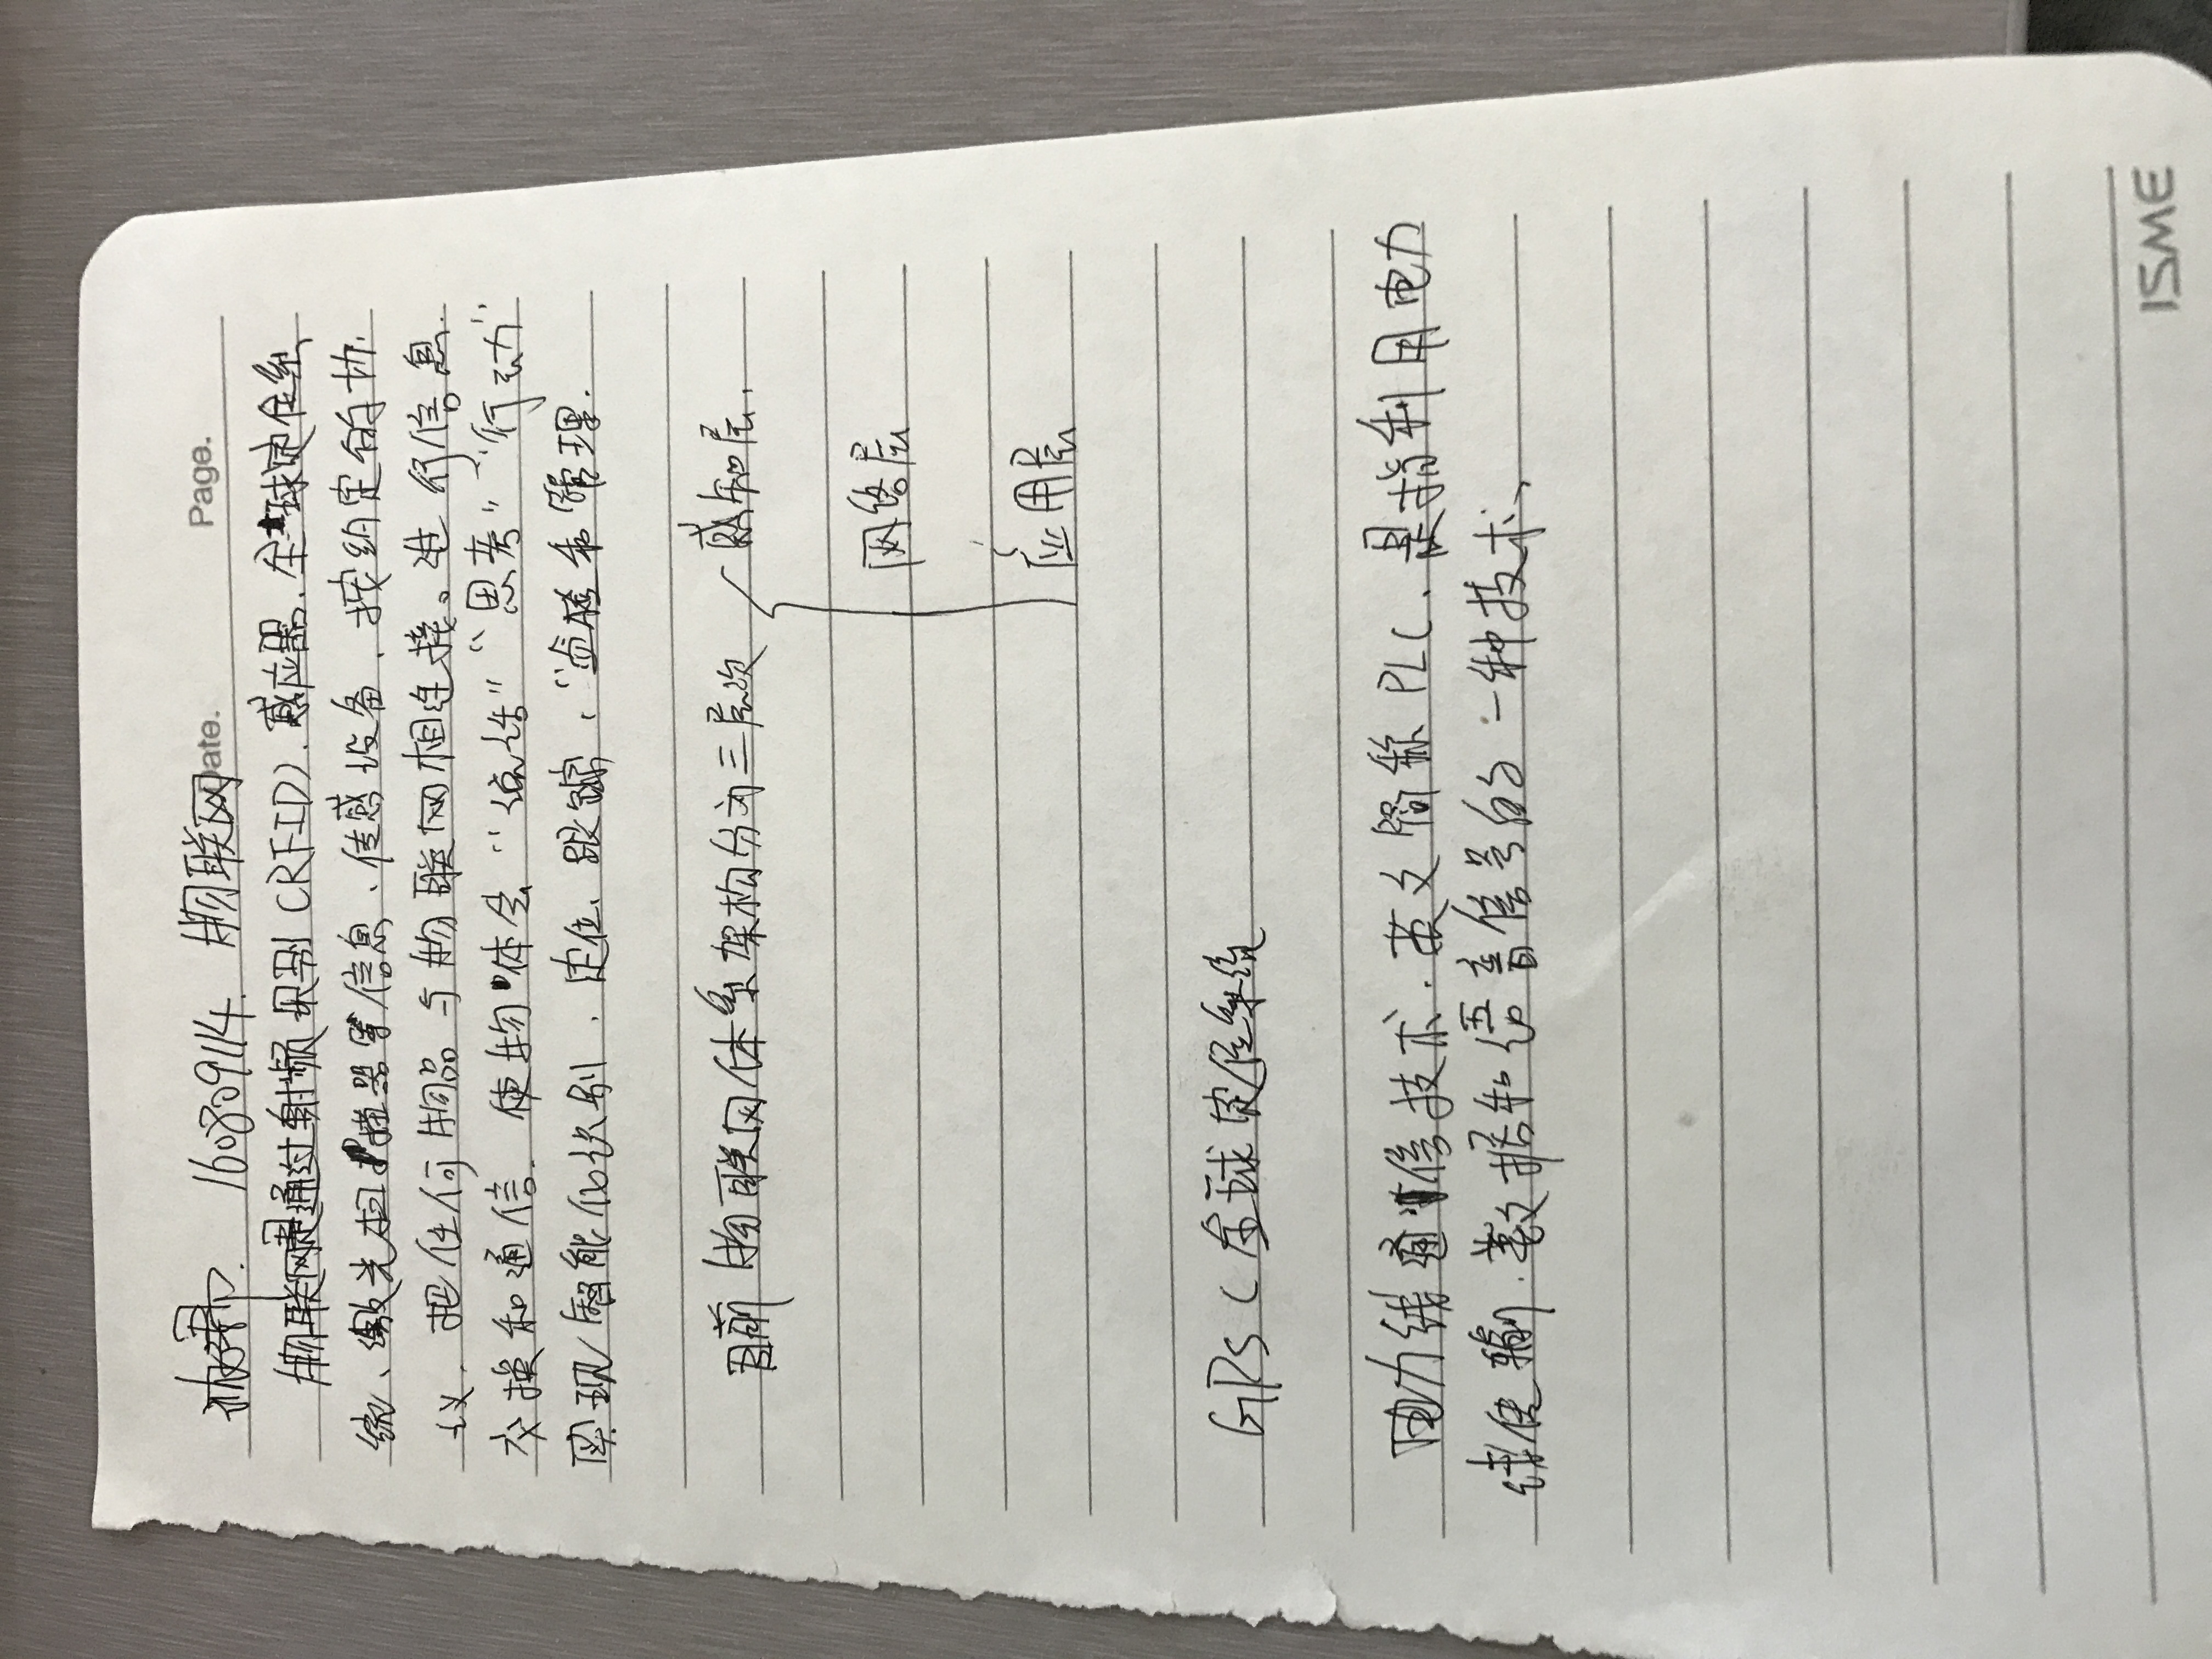 Date. Page.
16089114. 物联网
物联网是通过射频识别(RFID).感应器.全球定位系
统、激光扫描器等信息、传感设备、按约定的协.
议.把任何物品与物联网相连接。进行信息.
交换和通信.使物"体会""倾听""思考""行动"
实现智能化识别、定位.跟踪、监控和管理.
目前物联网体系架构分为三层次 感知层.
网络层
应用层
GPS(全球定位系统
电力线通信技术.英文简称PLC、是指利用电力
线传输.数据和语音信号的一种技术、
ISME